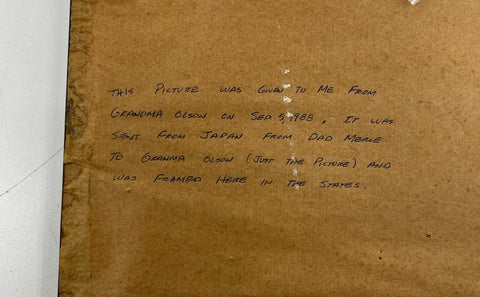 THIS PICTURE WAS GIVAN TO ME FROM
GRANDMA OLSON ON SEP 5, 1988, IT WAS
SENT FROM JAPAN FROM DAD MERLE
TO GRANMA OLSON (JUST THE PICTURE) AND
WAS FRAMED HERE IN THE STATES.